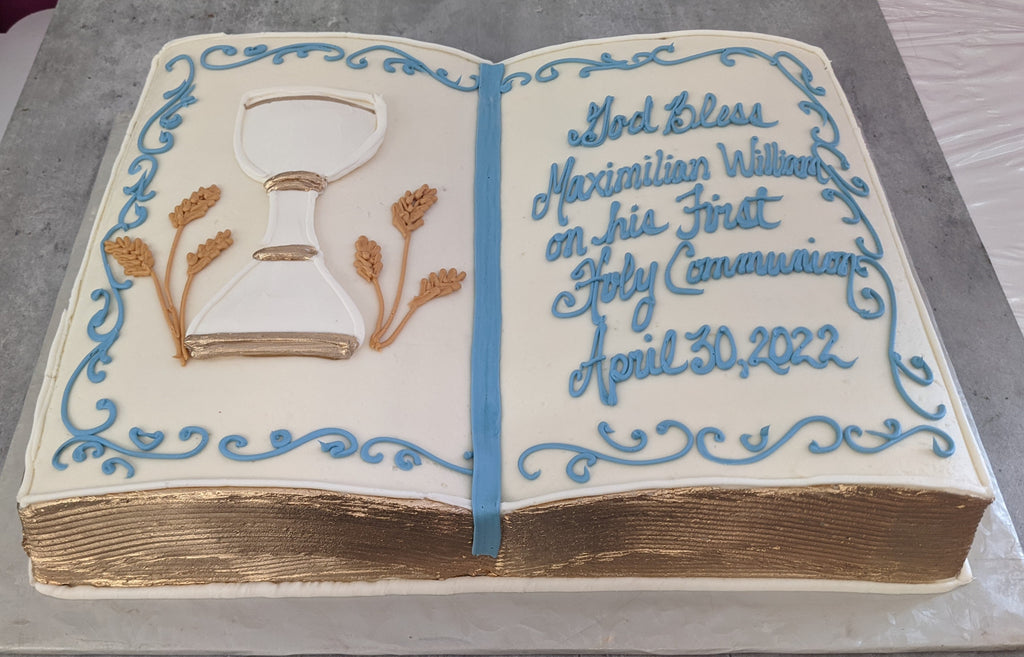 God Bless
Maximilian William
on his First
Holy Communion
April 30, 2022